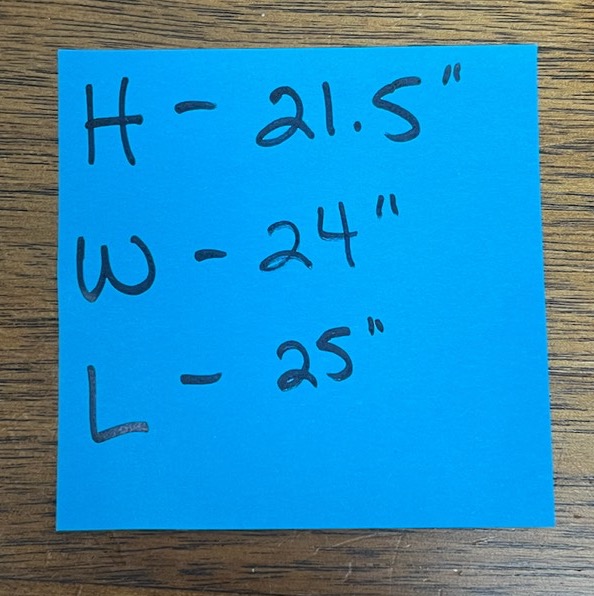 H - 21.5"
W - 24"
L - 25"